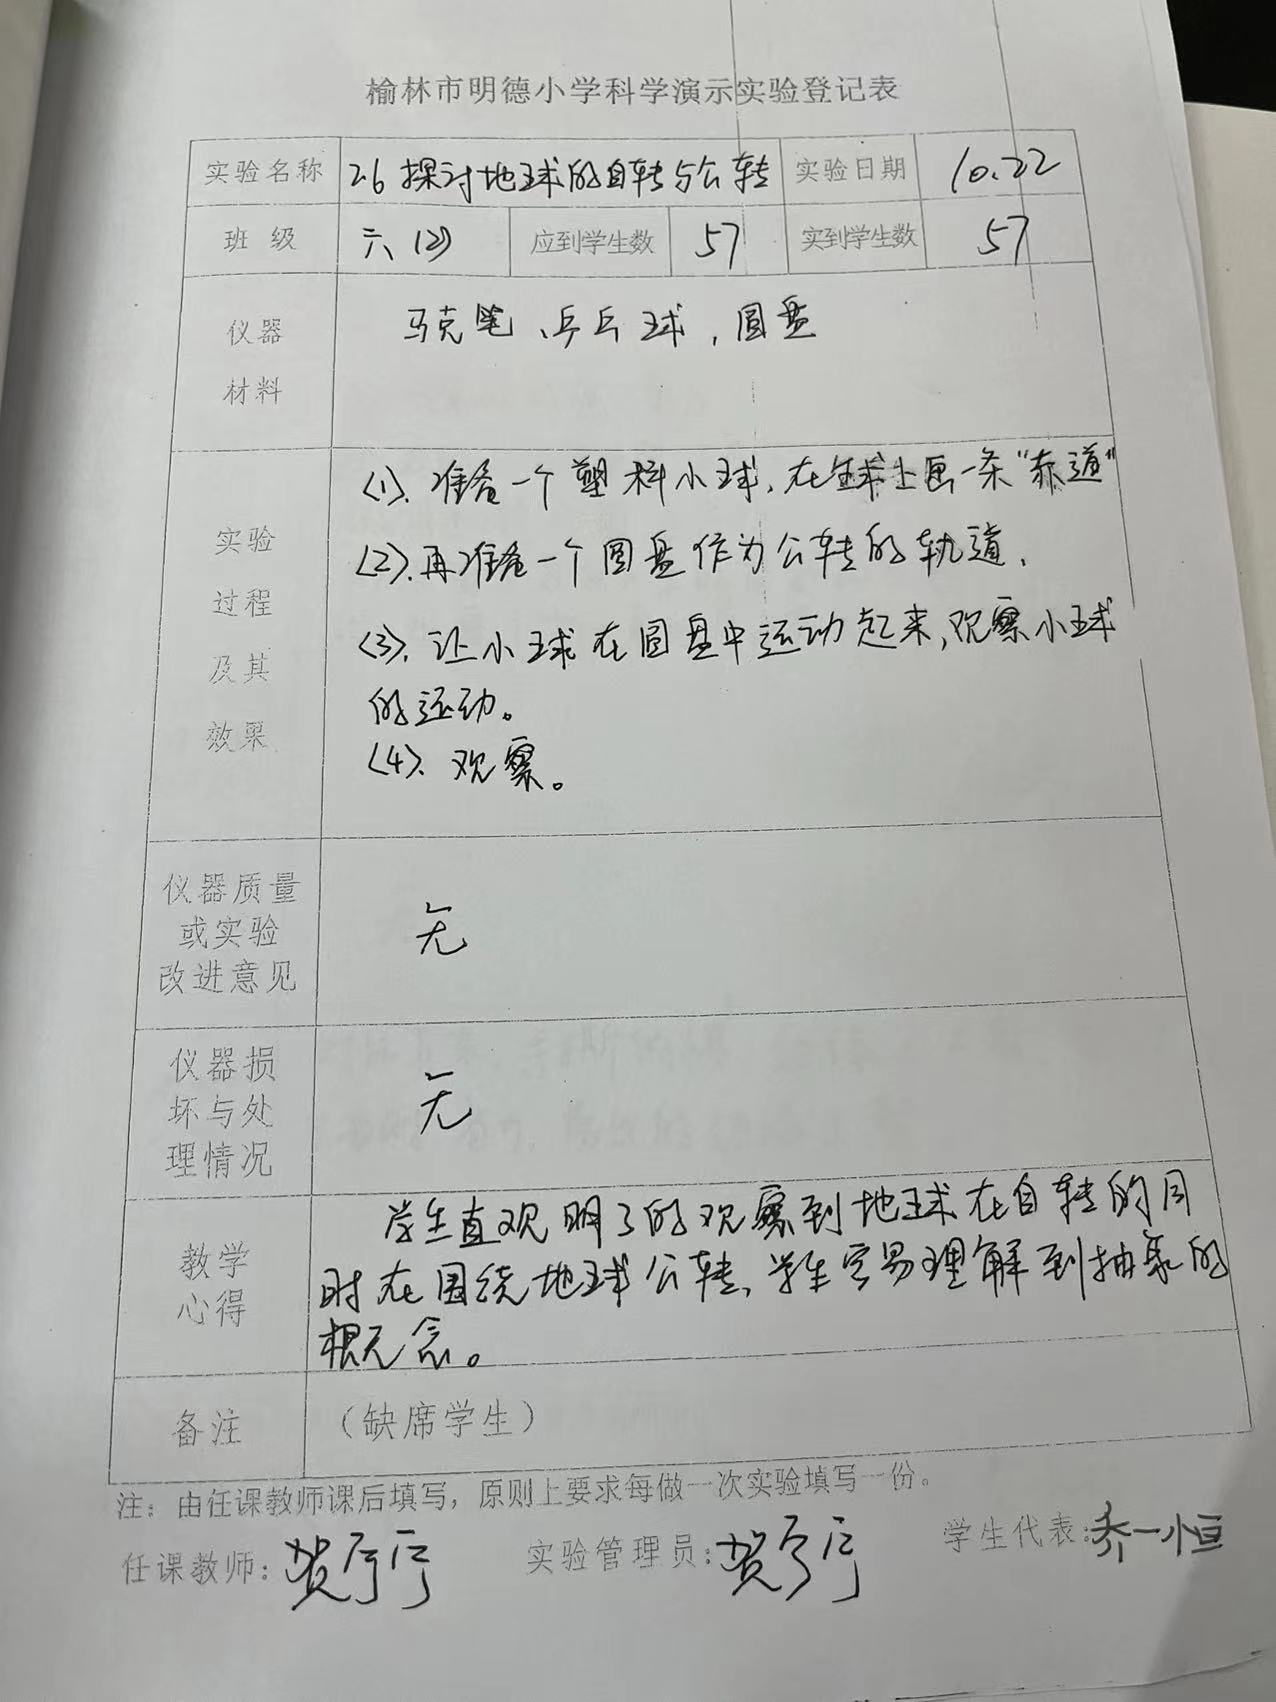 榆林市明德小学科学演示实验登记表
实验名称 2.6 探讨地球的自转与公转 实验日期 10.22
班 级 六(2) 应到学生数 57 实到学生数 57
仪器
材料
马克笔、乒乓球，圆盘
实验
过程
及其
效果
(1). 准备一个塑料小球，在球上画一条“赤道”
(2). 再准备一个圆盘作为公转的轨道．
(3). 让小球在圆盘中运动起来，观察小球
的运动。
(4). 观察。
仪器质量
或实验
改进意见
无
仪器损
坏与处
理情况
无
教学
心得
学生直观明了的观察到地球在自转的同
时在围绕地球公转，学生容易理解到抽象的
概念。
备注 （缺席学生）
注：由任课教师课后填写，原则上要求每做一次实验填写一份。
任课教师: 贺 实验管理员: 贺 学生代表: 乔一恒